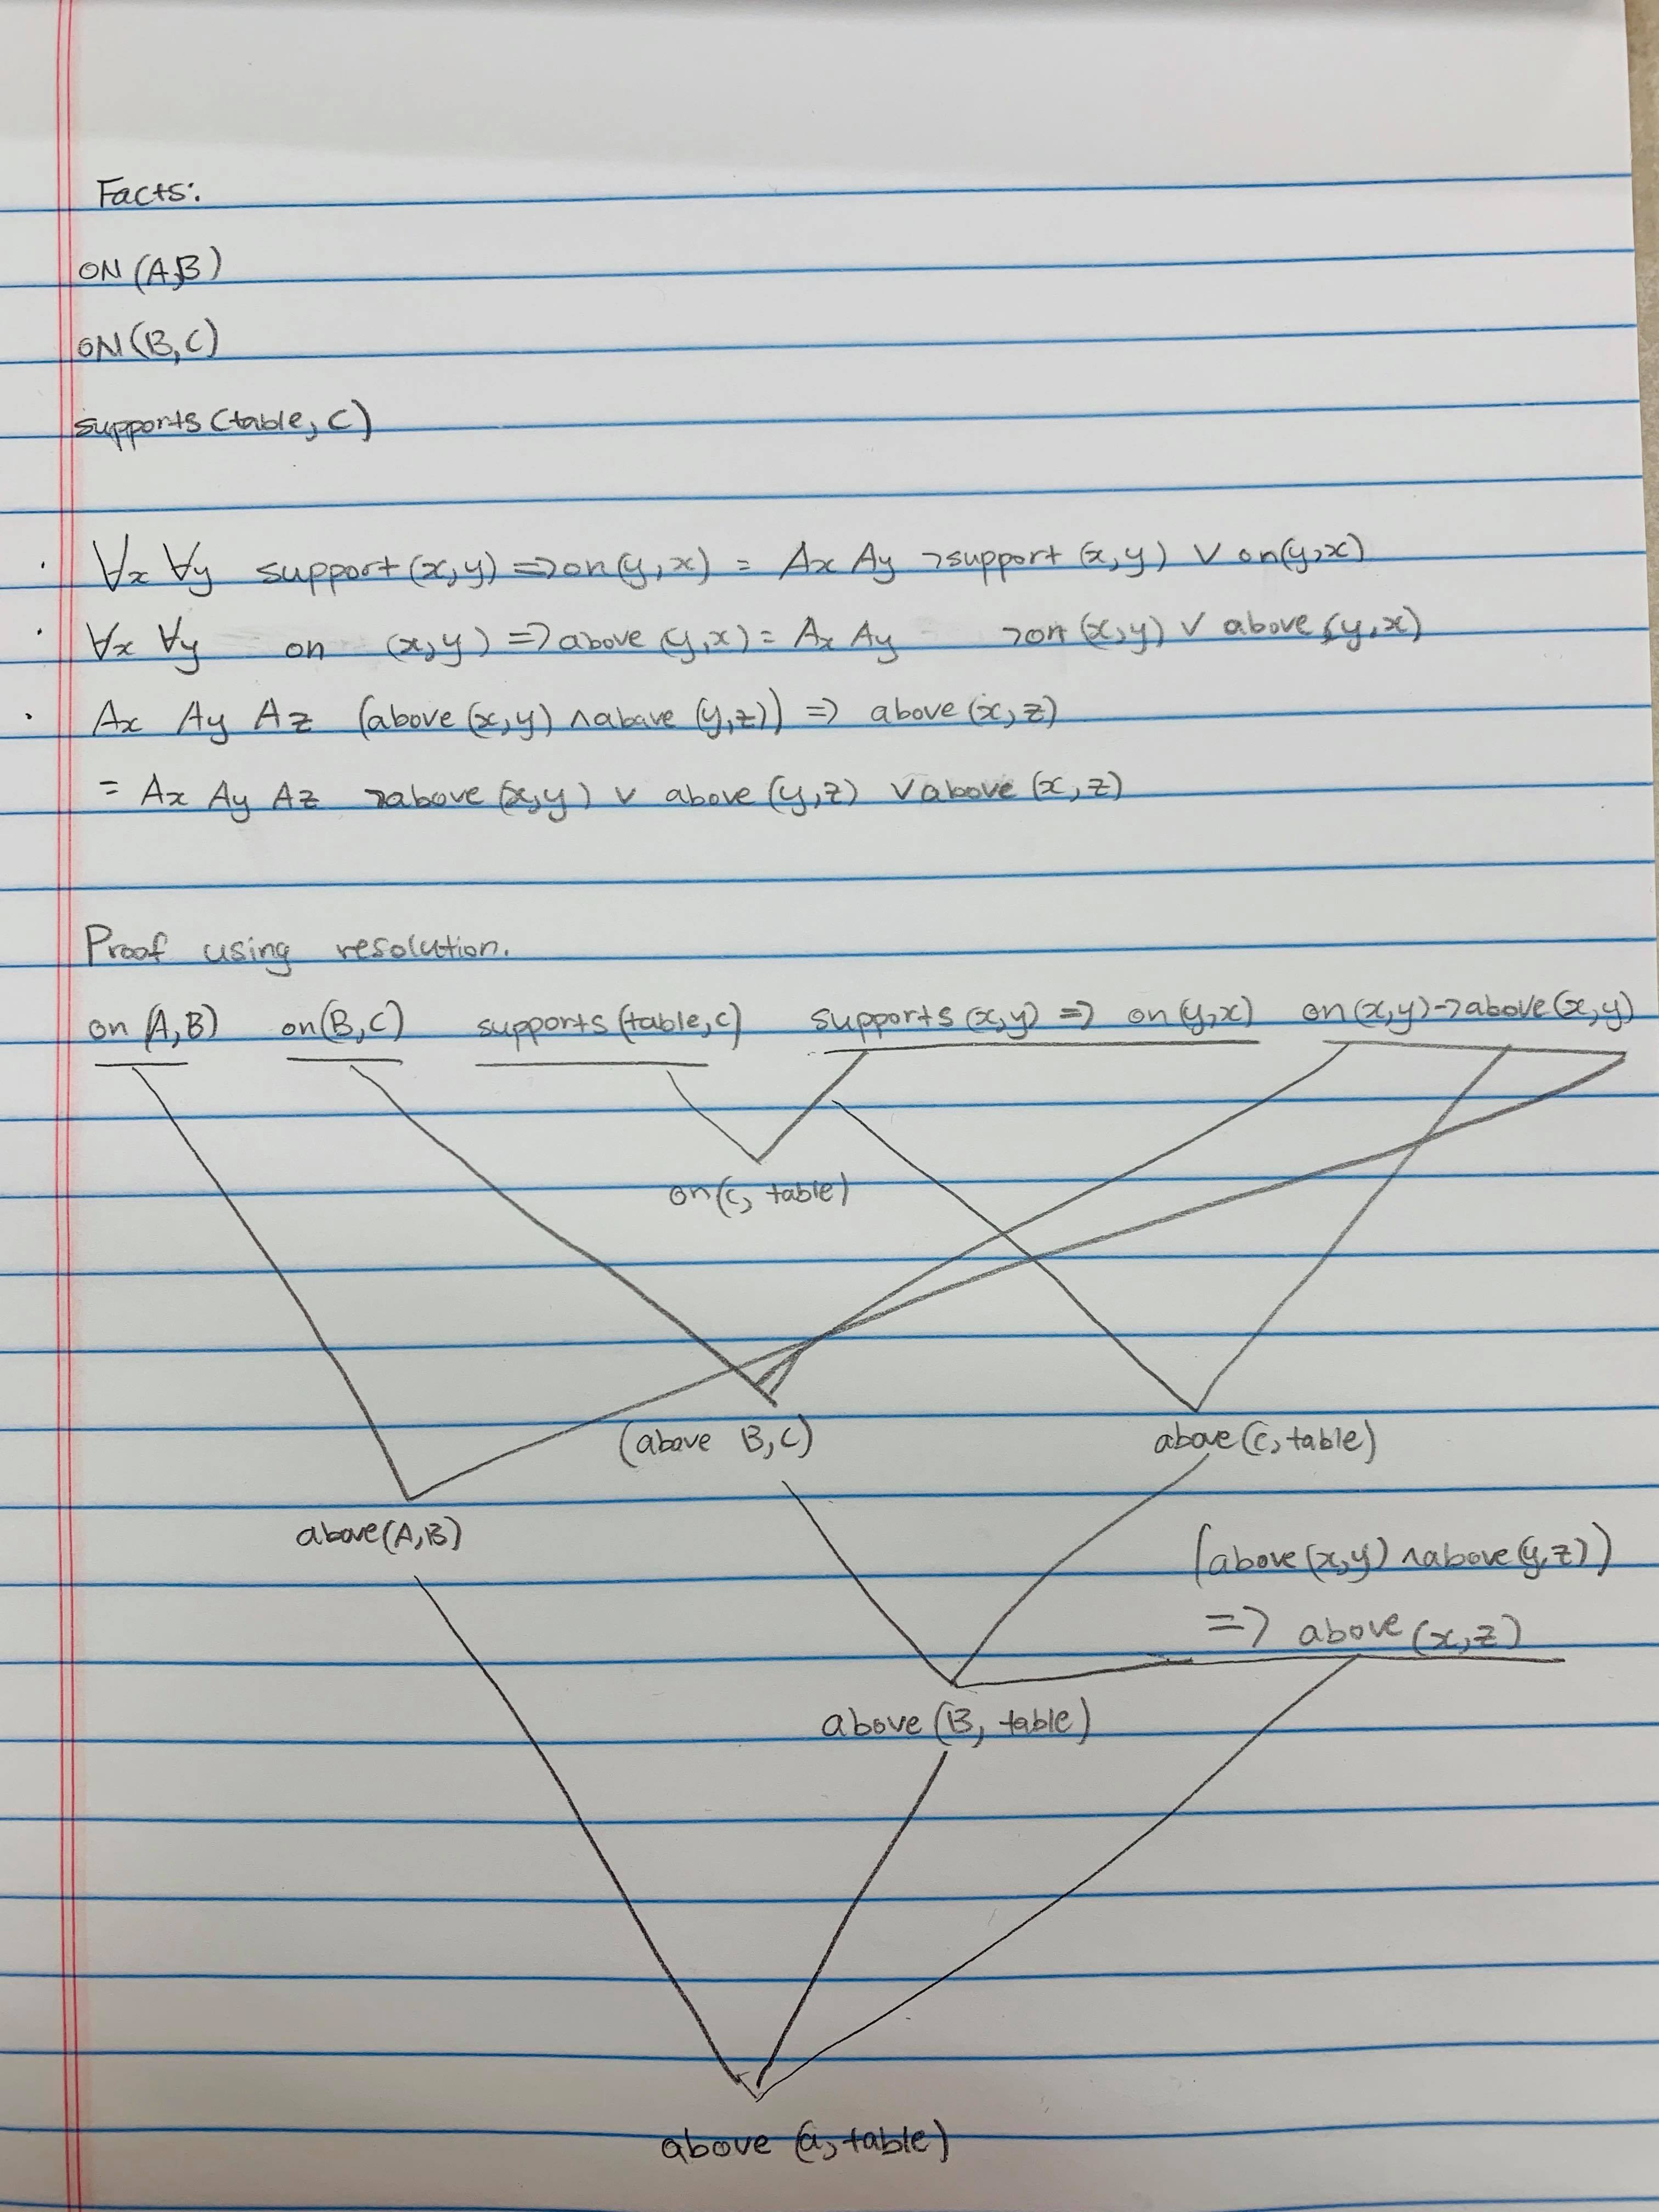 Facts:
ON (A,B)
ON (B,C)
supports (table, C)
∀x ∀y support (x,y) => on (y,x) = Ax Ay ¬support (x,y) ∨ on(y,x)
∀x ∀y on (x,y) => above (y,x) = Ax Ay ¬on (x,y) ∨ above (y,x)
Ax Ay Az (above (x,y) ∧ above (y,z)) => above (x,z)
= Ax Ay Az ¬above (x,y) ∨ above (y,z) ∨ above (x,z)
Proof using resolution.
on (A,B) on(B,C) supports (table,c) supports (x,y) => on (y,x) on(x,y)->above(x,y)
on(c, table)
(above B,C) above(c,table)
above(A,B)
(above(x,y) ∧ above(y,z))
=> above (x,z)
above (B, table)
above (a, table)